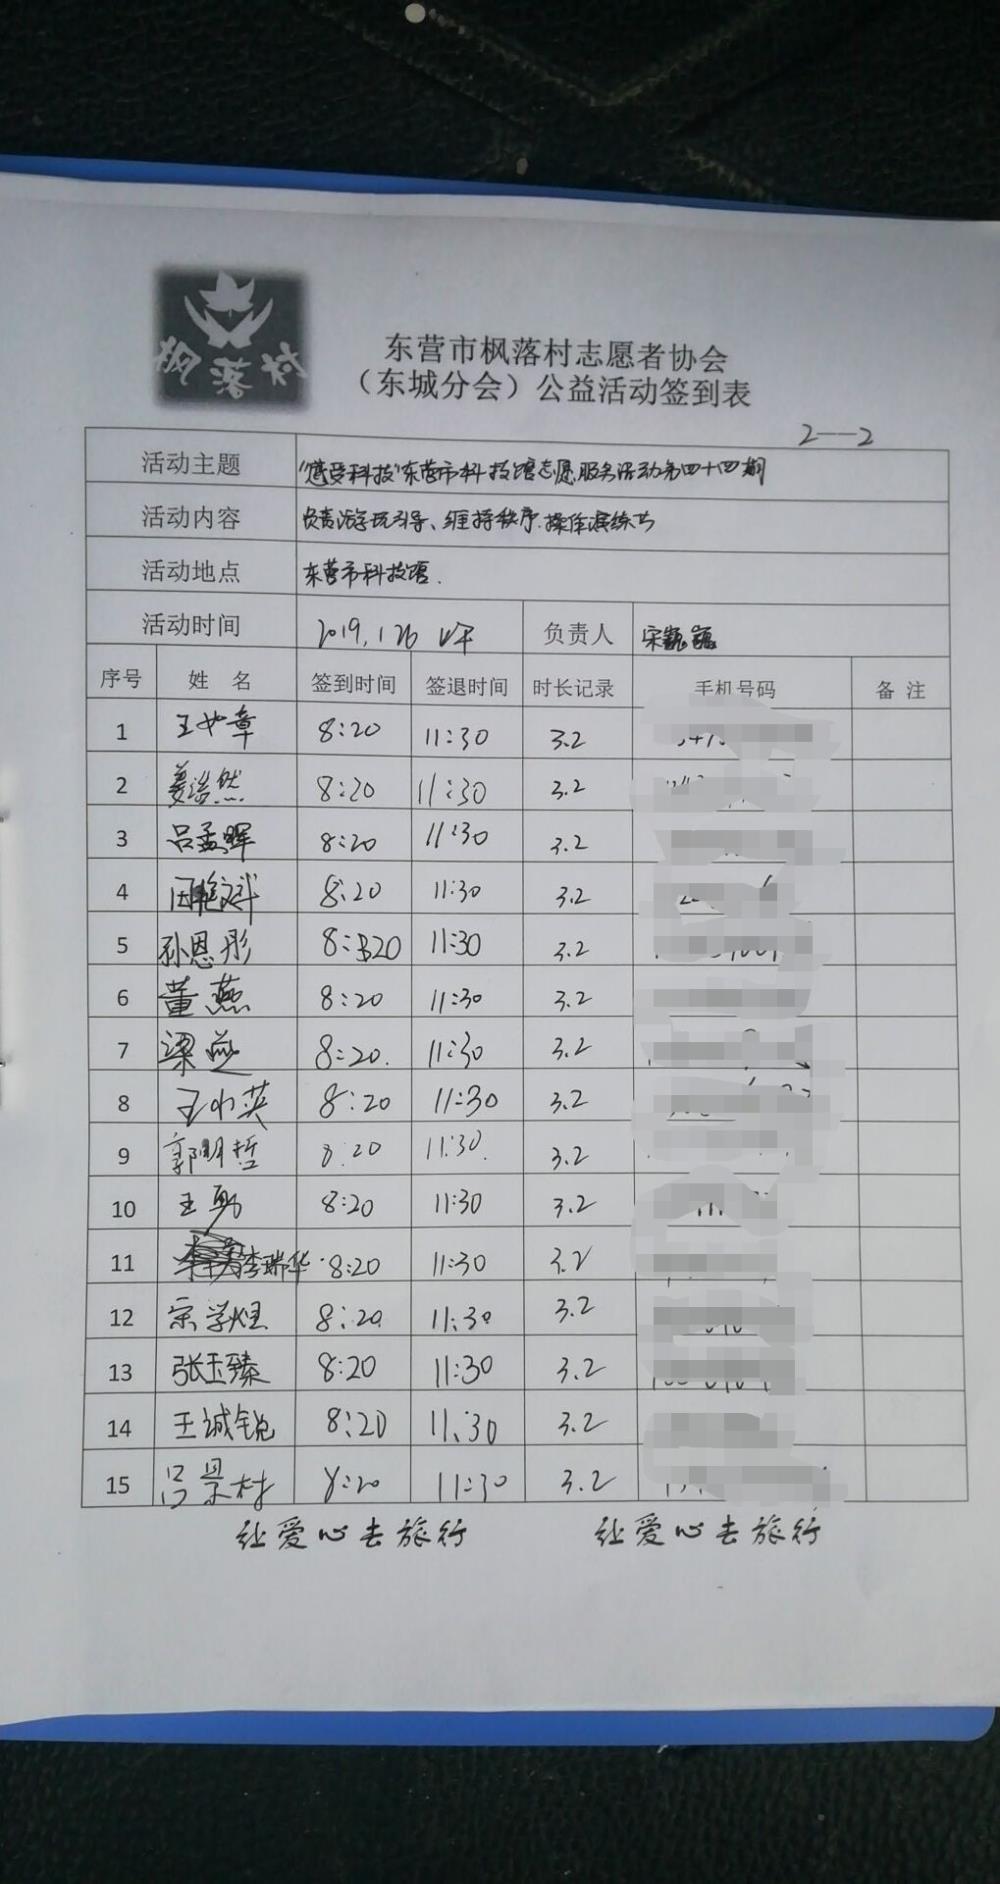 枫落村
东营市枫落村志愿者协会
（东城分会）公益活动签到表
2—2
活动主题 "感受科技"东营市科技馆志愿服务活动第四十四期
活动内容 负责游学玩引导、维持秩序.操作演练等
活动地点 东营市科技馆.
活动时间 2019.1.26 上午 负责人 宋巍巍
序号 姓 名 签到时间 签退时间 时长记录 手机号码 备 注
1 王女章 8:20 11:30 3.2
2 姜浩然 8:20 11:30 3.2
3 吕孟晖 8:20 11:30 3.2
4 8:20 11:30 3.2
5 孙恩彤 8:20 11:30 3.2
6 董燕 8:20 11:30 3.2
7 梁燕 8:20. 11:30 3.2
8 王小英 8:20 11:30 3.2
9 郭明哲 8:20 11:30. 3.2
10 王勇 8:20 11:30 3.2
11 李瑞华 8:20 11:30 3.2
12 宗学煜 8:20 11:30 3.2
13 张玉臻 8:20 11:30 3.2
14 王诚锐 8:20 11:30 3.2
15 吕景村 8:20 11:30 3.2
让爱心去旅行 让爱心去旅行